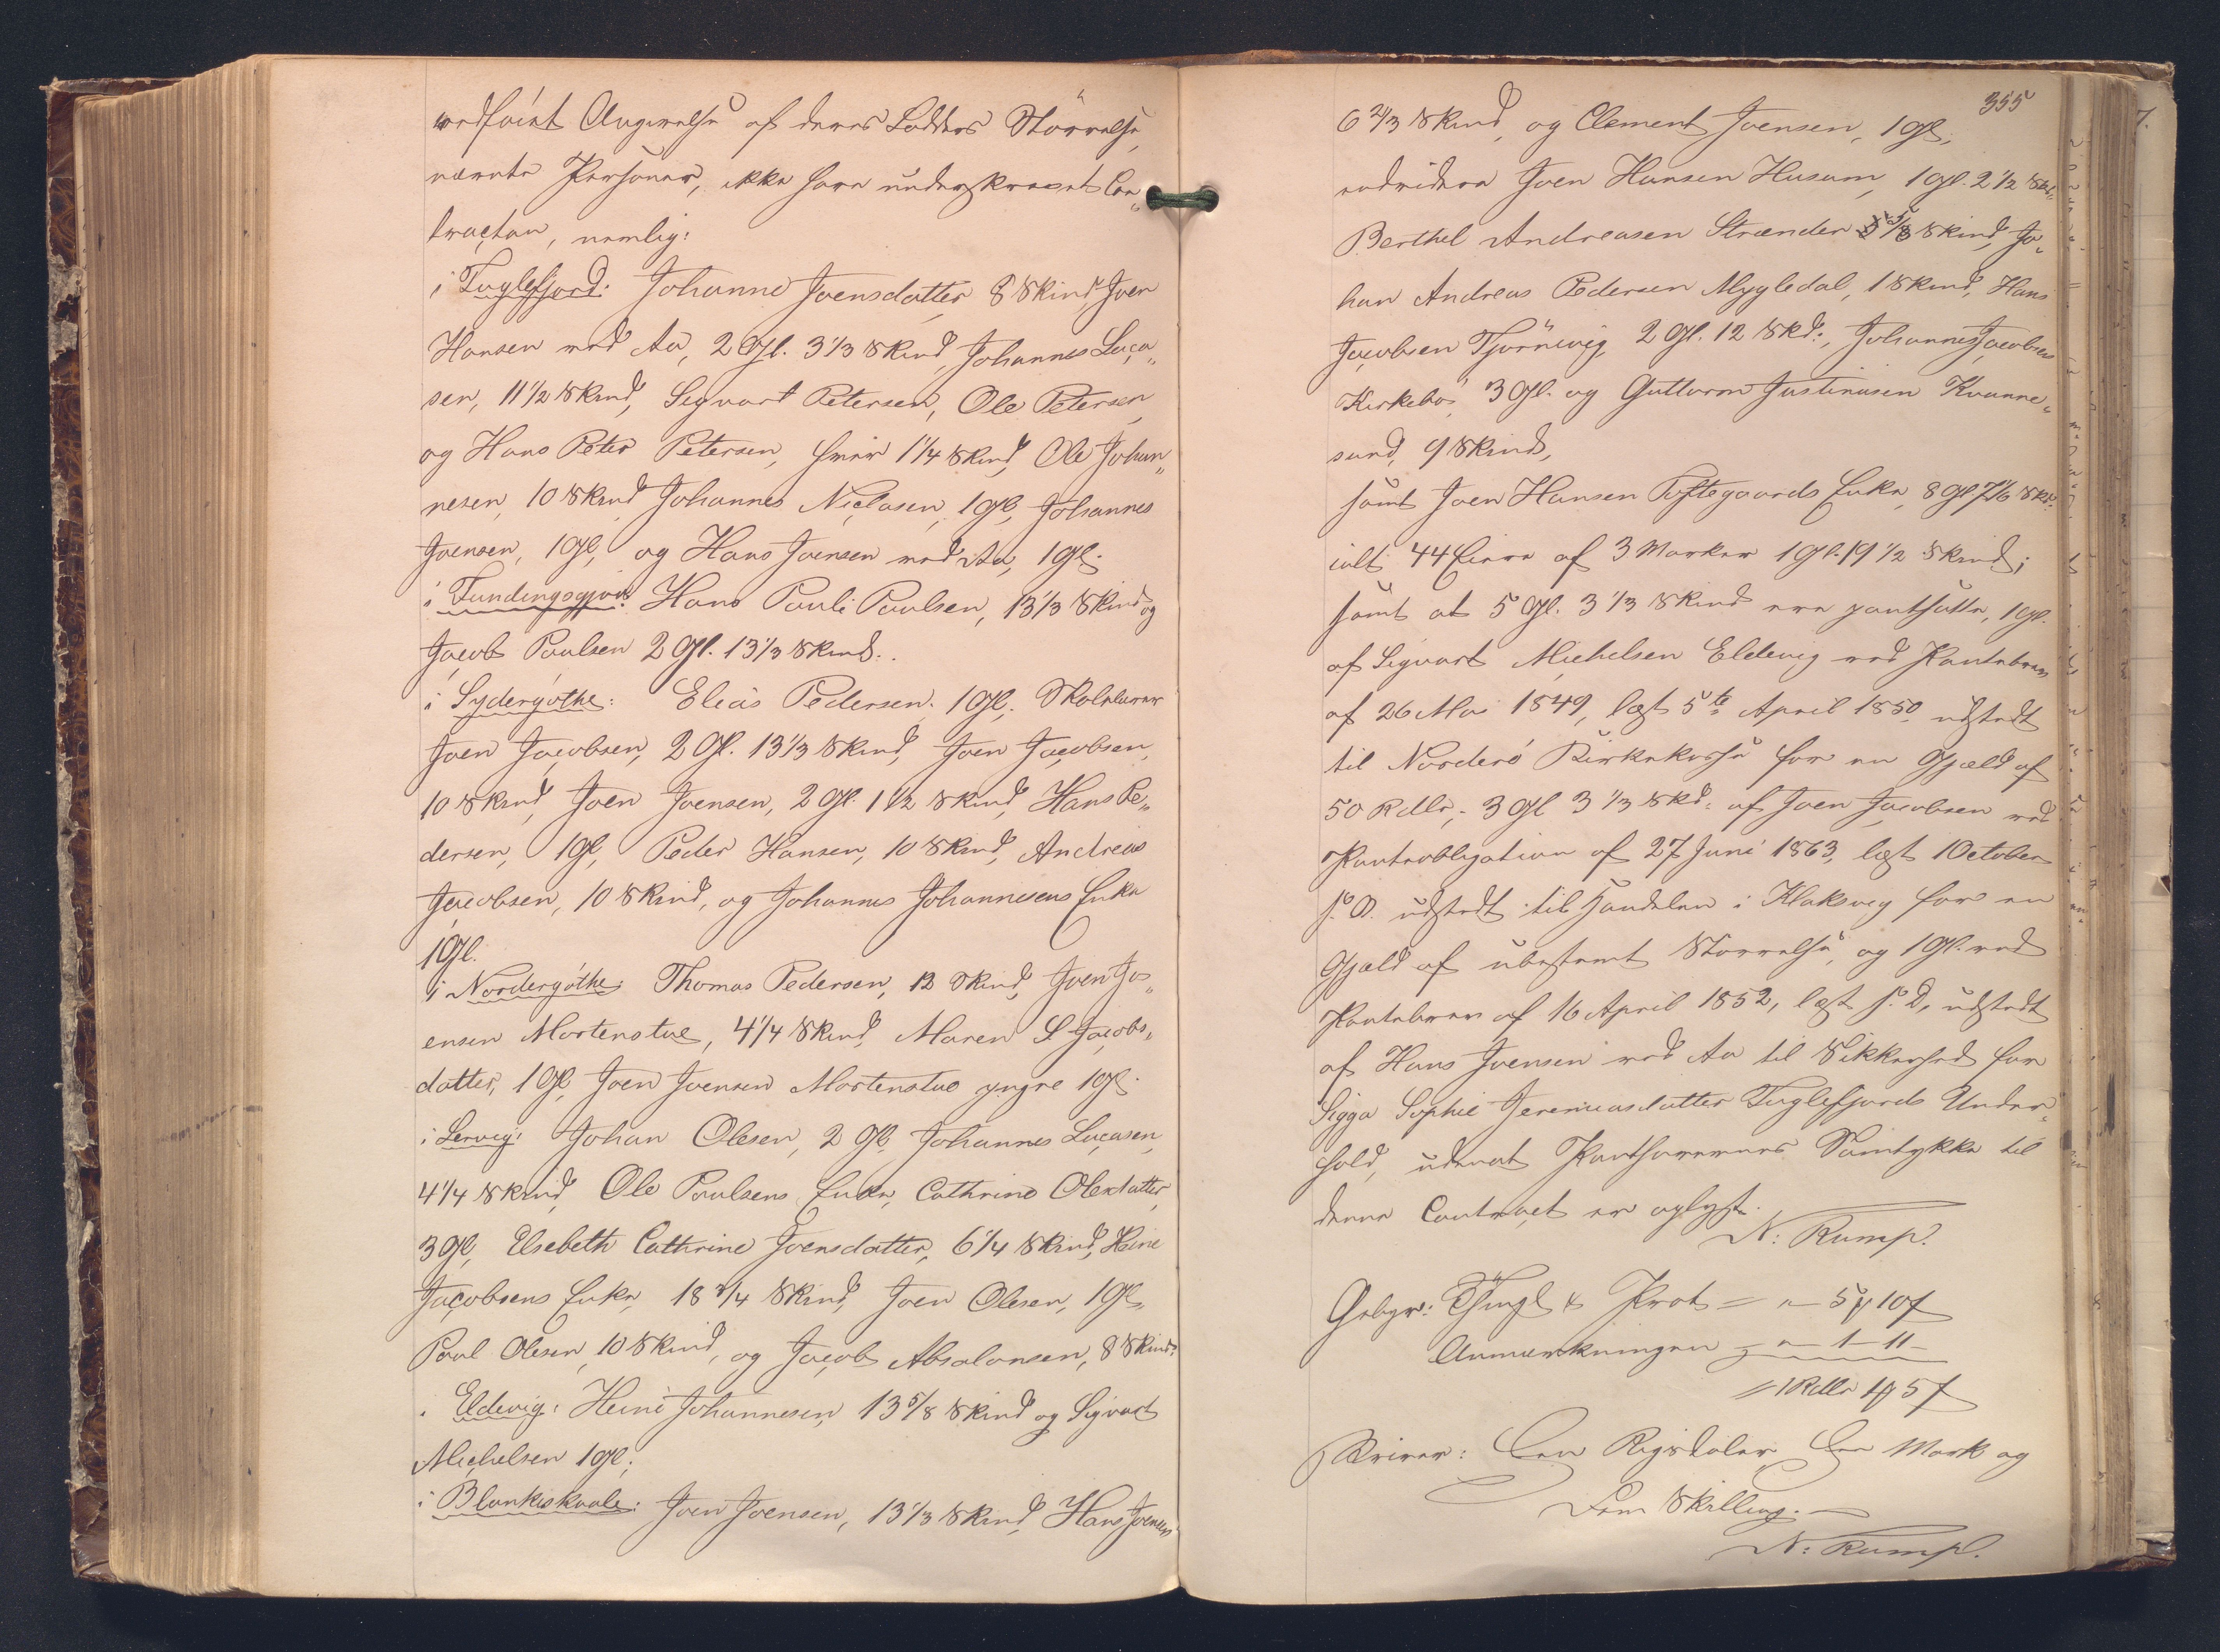 vedføiet Angivelse af deres Lodders Størrelse,
nævnte Personer, ikke have underskrevet Con„
tracten, nemlig:
i Fuglefjord: Johanne Joensdatter 8 Skind, Joen
Hansen ved Aa, 2 Gl. 3 1/3 Skind, Johannes Luca„
sen, 11 1/2 Skind, Sigvart Petersen, Ole Petersen
og Hans Peter Petersen, hver 1 1/4 Skind, Ole Johan„
nesen, 10 Skind Johannes Niclasen, 1 Gl, Johannes
Joensen, 1 Gl, og Hans Joensen ved Aa, 1 Gl.
i Fundingsgjov: Hans Pauli Poulsen, 13 1/3 Skind og
Jacob Poulsen 2 Gl. 13 1/3 Skind.
i Sydergøthe: Elias Pedersen 1 Gl; Skolelærer
Joen Jacobsen, 2 Gl. 13 1/3 Skind, Joen Jacobsen,
10 Skind, Joen Joensen, 2 Gl. 1 1/2 Skind, Hans Pe„
dersen, 1 Gl, Peder Hansen, 10 Skind, Andreas
Jacobsen, 10 Skind, og Johannes Johannesens Enke
1 Gl.
i Nordergøthe: Thomas Pedersen, 12 Skind, Joen Jo„
ensen Mortenstue, 4 1/4 Skind, Maren S Jacobs„
datter, 1 Gl, Joen Joensen Mortenstue yngre 1 Gl.
i Lervig: Johan Olesen, 2 Gl, Johannes Lucasen,
4 1/4 Skind, Ole Poulsens Enke, Cathrine Olesdatter,
3 Gl, Elsebeth Cathrine Joensdatter, 6 1/4 Skind, Heine
Jacobsens Enke, 18 3/4 Skind, Joen Olesen, 1 Gl,
Poul Olesen, 10 Skind, og Jacob Absalonsen, 8 Skind.
i Eldevig: Heine Johannesen 13 5/8 Skind og Sigvart
Michelsen 1 Gl;
i Blankeskaale: Joen Joensen, 13 1/3 Skind, Hans Joensen
355
6 2/3 Skind, og Clement Joensen, 1 Gl;
endvidere Joen Hansen Husum, 1 Gl. 2 1/2 Skd.,
Berthel Andreasen Strænder 5/8 Skind, Jo„
han Andreas Pedersen Mygledal, 1 Skind, Hans
Jacobsen Tjørnevig, 2 Gl. 12 Skd:, Johannes Jacobsen
Kirkebø, 3 Gl. og Guttorm Justinusen Kvanne„
sund, 9 Skind,
samt Joen Hansen Toftegaards Enke, 8 Gl 7 1/6 Skd.
ialt 44 Eiere af 3 Marker 1 Gl. 19 1/2 Skind;
samt at 5 Gl. 3 1/3 Skind ere pantsatte, 1 Gl.
af Sigvart Michelsen Eldevig ved Pantebrev
af 26 Mai 1849, læst 5te April 1850 udstedt
til Norderø Kirkekasse for en Gjæld af
50 Rdlr, - 3 Gl 3 1/3 Skd: af Joen Jacobsen ved
Pantobligation af 27 Juni 1863, læst 1 October
s. A. udstedt til Handelen i Klaksvig for en
Gjæld af ubestemt Størrelse, og 1 Gl. ved
Pantebrev af 16 April 1852, læst s. D, udstedt
af Hans Joensen ved Aa til Sikkerhed for
Sigga Sophie Jeremiasdatter Fuglefjords Under„
hold, uden at Panthavernes Samtykke til
denne Contract er oplyst.
N: Rump.
Gebyr: Thingl & Prot = „ - 5 ₰ 10 ß
Anmærkningen = „ - 1 - 11 -
= 1 Rdlr 1 ₰ 5 ß
skriver: Een Rigsdaler, Een Mark og
Fem Skilling. —
N: Rump.